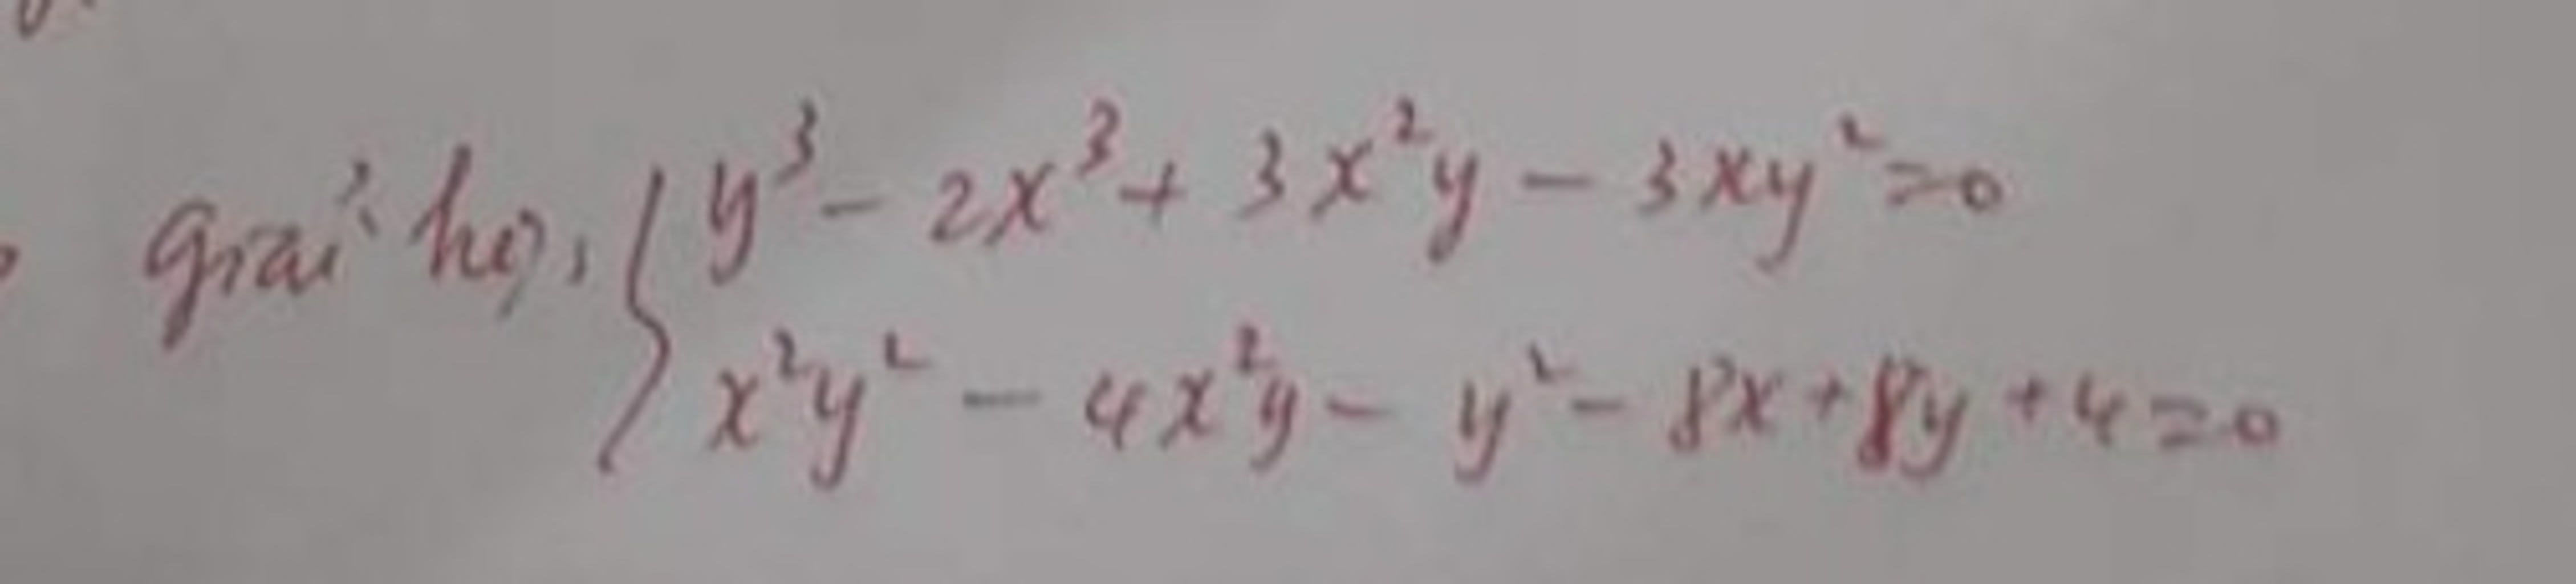 giải hệ, { y³ - 2x³ + 3x²y - 3xy² = 0
x²y² - 4x²y - y² - 8x + 8y + 4 = 0